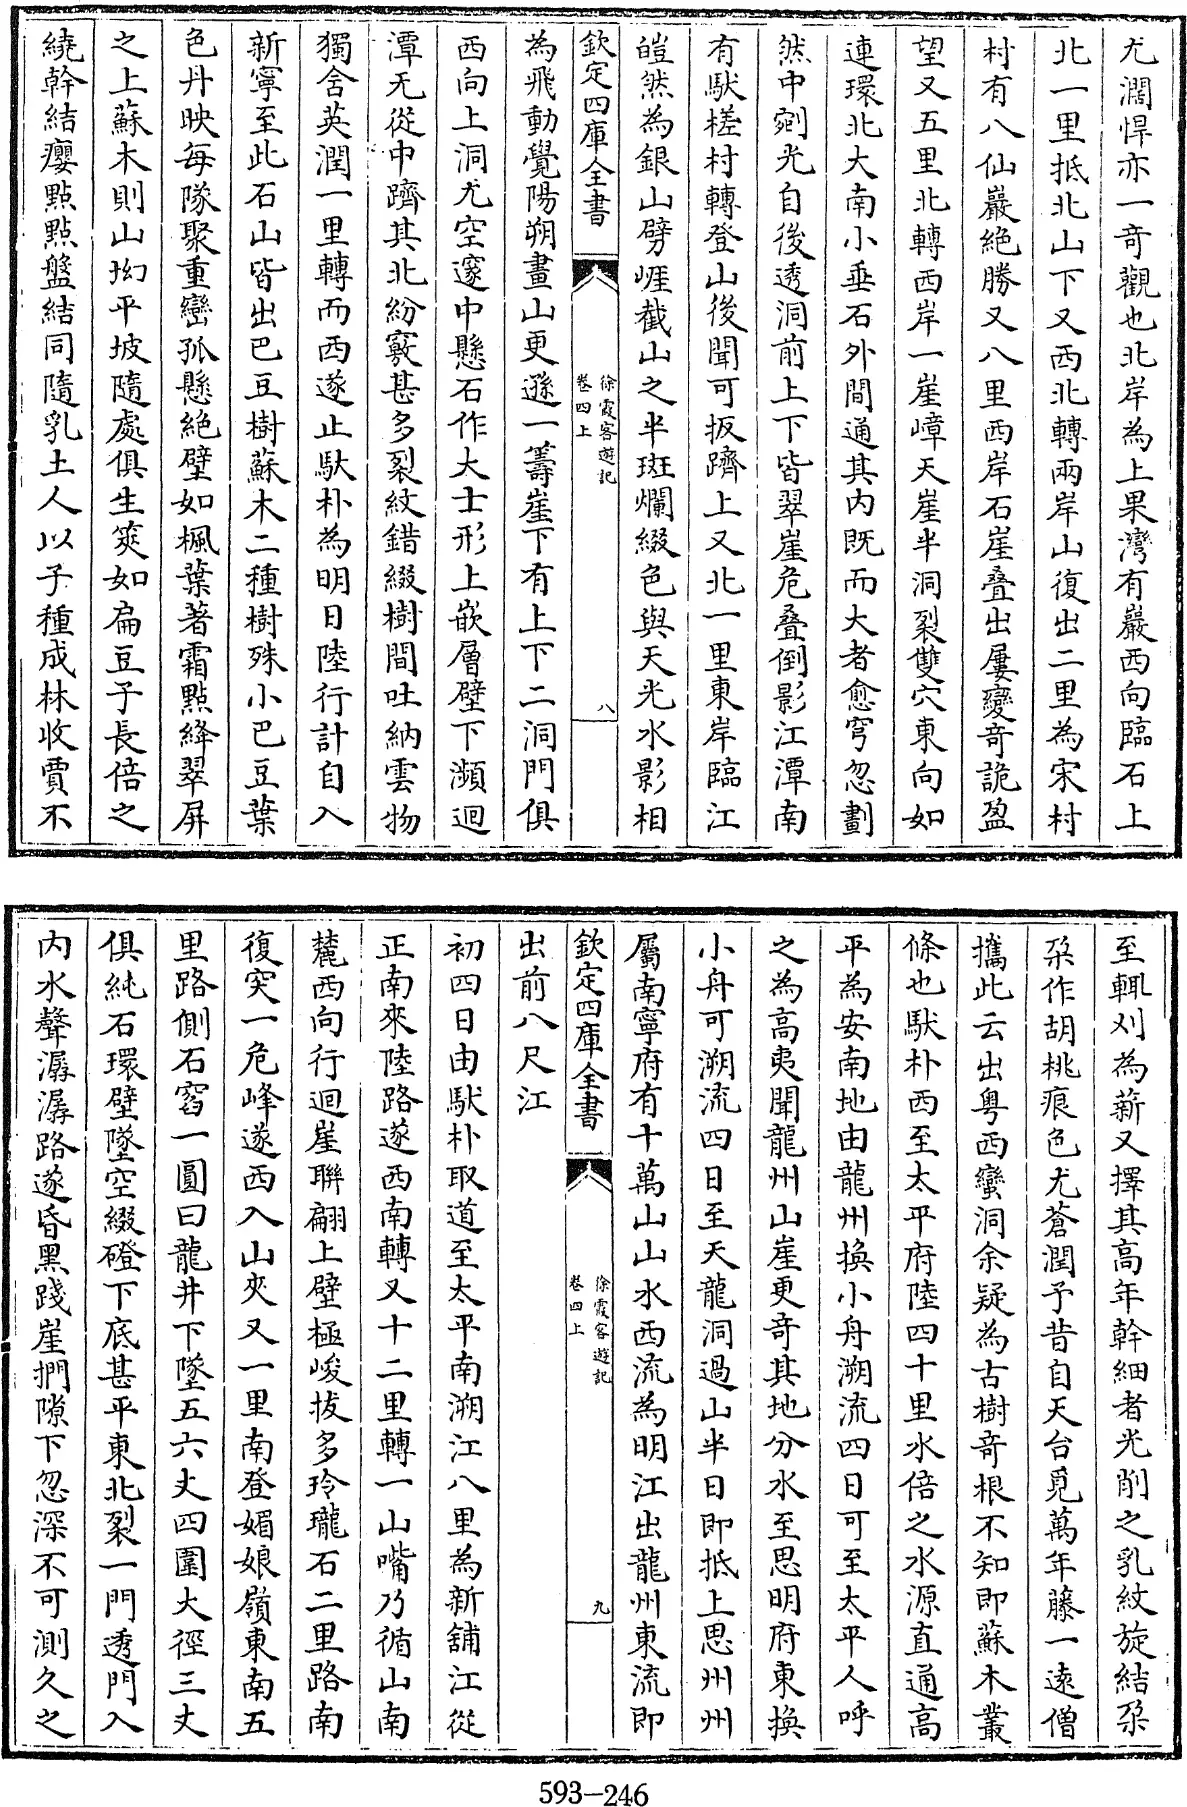 尤濶悍亦一竒觀也北岸為上果灣有巖西向臨石上
北一里抵北山下又西北轉兩岸山復出二里為宋村
村有八仙巖絶勝又八里西岸石崖叠出屢變竒詭盈
望又五里北轉西岸一崖嶂天崖半洞裂雙穴東向如
連環北大南小垂石外間通其内既而大者愈穹忽劃
然中剜光自後透洞前上下皆翠崖危叠倒影江潭南
有馱槎村轉登山後聞可扳躋上又北一里東岸臨江
皚然為銀山劈崕截山之半斑斕綴色與天光水影相
欽定四庫全書
徐霞客遊記
卷四上
八
為飛動覺陽朔畫山更遜一籌崖下有上下二洞門俱
西向上洞尤空邃中懸石作大士形上嵌層壁下瀕迴
潭无從中躋其北紛竅甚多裂紋錯綴樹間吐納雲物
獨含英潤一里轉而西遂止馱朴為明日陸行計自入
新寧至此石山皆出巴豆樹蘇木二種樹殊小巴豆葉
色丹映每隊聚重巒孤懸絶壁如楓葉著霜點絳翠屏
之上蘇木則山坳平坡隨處俱生筴如扁豆子長倍之
繞幹結癭點點盤結同隨乳土人以子種成林收賈不
至輒刈為薪又擇其高年幹細者光削之乳紋旋結朶
朶作胡桃痕色尤蒼潤予昔自天台覓萬年藤一逺僧
攜此云出粤西蠻洞余疑為古樹竒根不知即蘇木叢
條也馱朴西至太平府陸四十里水倍之水源直通髙
平為安南地由龍州換小舟溯流四日可至太平人呼
之為髙夷聞龍州山崖更竒其地分水至思明府東換
小舟可溯流四日至天龍洞過山半日即抵上思州州
屬南寧府有十萬山山水西流為明江出龍州東流即
欽定四庫全書
徐霞客遊記
卷四上
九
出前八尺江
初四日由馱朴取道至太平南溯江八里為新舖江從
正南來陸路遂西南轉又十二里轉一山嘴乃循山南
麓西向行迴崖聯翩上壁極峻拔多玲瓏石二里路南
復突一危峰遂西入山夾又一里南登媚娘嶺東南五
里路側石窞一圓曰龍井下墜五六丈四圍大徑三丈
俱純石環壁墜空綴磴下底甚平東北裂一門透門入
内水聲潺潺路遂昏黑踐崖捫隙下忽深不可測久之
593-246